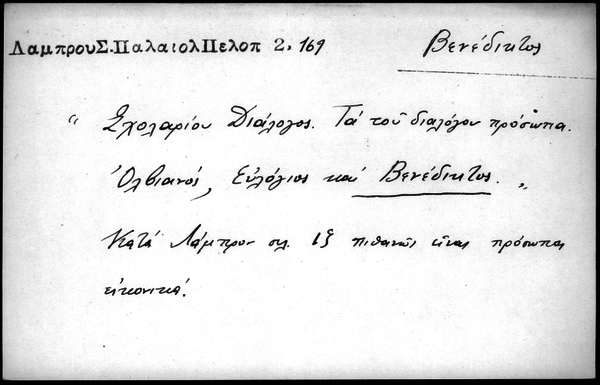 ΛαμπρουΣ.ΠαλαιολΠελοπ 2. 169
Βενέδικτος
“ Σχολαρίου Διάλογος. Τά τοῦ διαλόγου πρόσωπα.
Ὀλβιανός, Εὐλόγιος καί Βενέδικτος. „
Κατά Λάμπρον σελ. ιξ πιθανῶς εἶναι πρόσωπα
εἰκονικά.